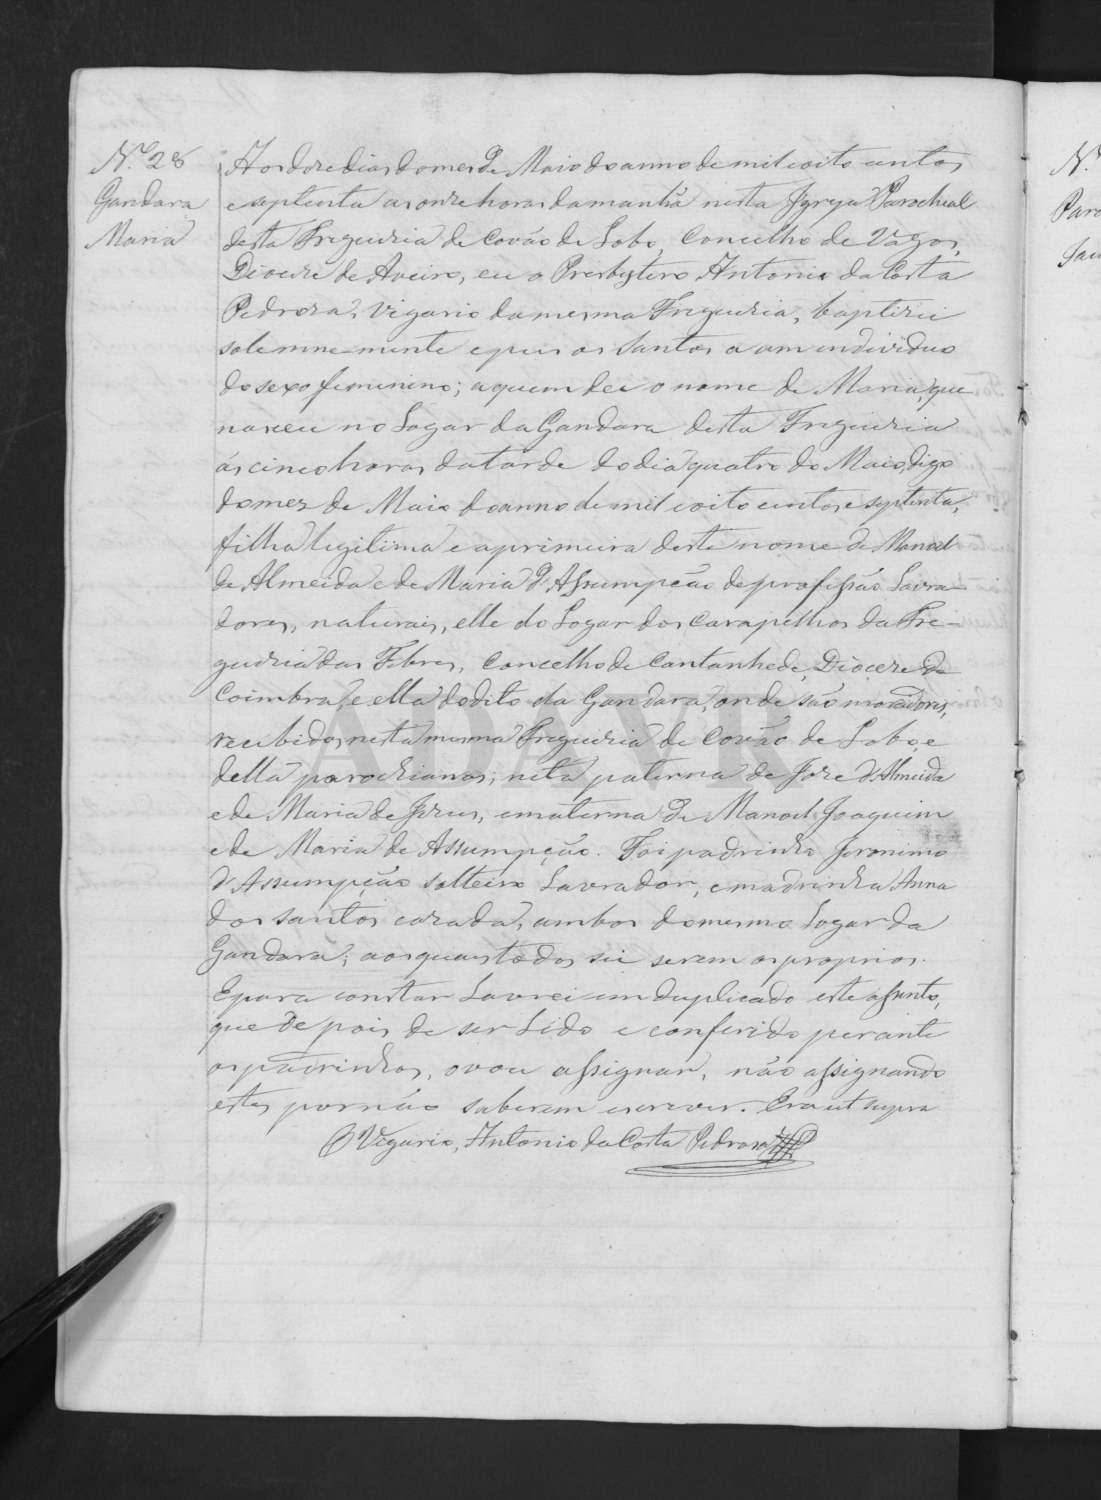 Nº 28
Gandara
Maria
Aos doze dias do mes de Maio do anno de mil oito centos
e septenta as onze horas da manhã nesta Igreja Parochial
desta Freguezia de Covão de Lobo, Concelho de Vagos,
Diocese de Aveiro, eu o Presbytero Antonio da Costa
Pedroza, Vigario da mesma Freguezia, baptizei
solemnemente e puz os Santos a um individuo
do sexo feminino; a quem dei o nome de Maria, que
nasceu no Logar da Gandara desta Freguezia
ás cinco horas da tarde do dia quatro do Maio, digo
do mez de Maio do anno de mil e oito centos e septenta,
filha legitima e a primeira deste nome de Manoel
de Almeida e de Maria d'Assumpção de profissão Lavra-
dores, naturais, elle do Logar dos Carapelhos da Fre-
guezia das Febres, Concelho de Cantanhede, Dioceze de
Coimbra, e ella do dito da Gandara, onde são moradores,
recebidos nesta mesma Freguezia de Covão de Lobo, e
della parochianos; neta paterna de Joze d'Almeida
e de Maria de Jezus, e materna de Manoel Joaquim
e de Maria de Assumpção. Foi padrinho Jeronimo
d'Assumpção solteiro Lavrador, e madrinha Anna
dos Santos cazada, ambos do mesmo Logar da
Gandara; aos quaes todos sei serem os proprios.
E para constar Lavrei em duplicado este assento,
que depois de ser Lido e conferido perante
os padrinhos, o vou assignar, não assignando
estes por não saberem escrever. Era ut supra
O Vigario, Antonio da Costa Pedroza
ADAVR
Nº